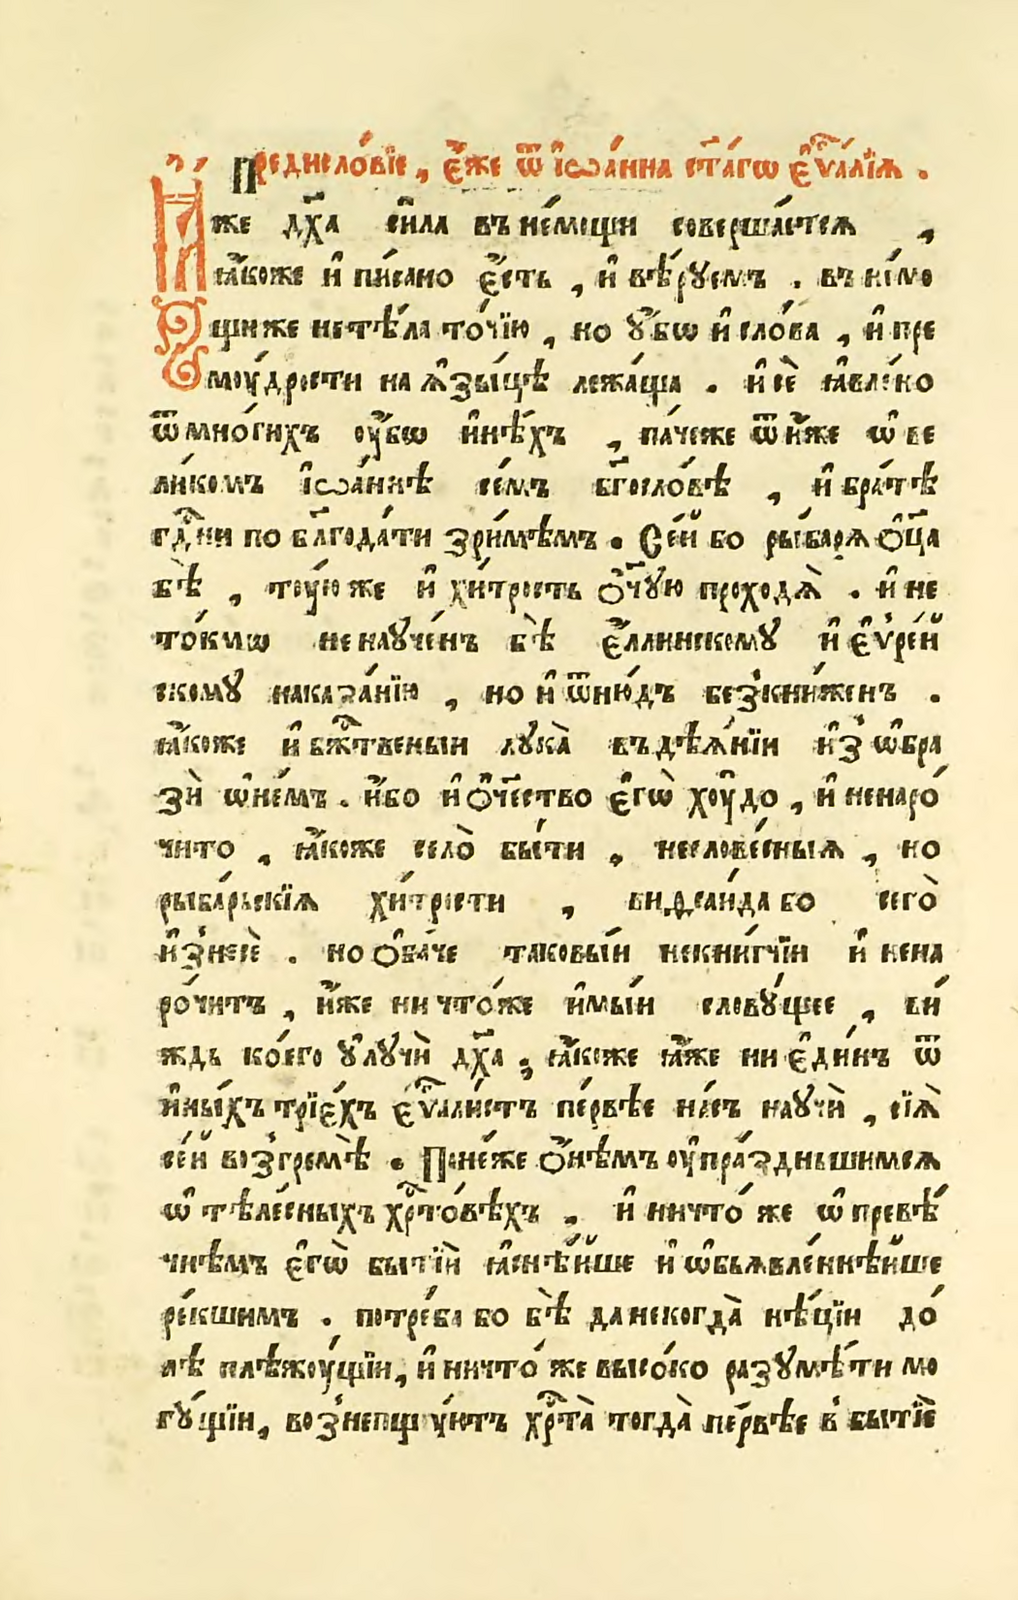 Предисло́вїе, є҆́же ѿ і҆ѡа́нна ст҃а́гѡ є҆ѵⷢ҇а́лїѧ.
И҆́же дх҃а си́ла въ не́мощи соверша́етсѧ,
ꙗ҆́коже и҆ пи́сано є҆́сть, и҆ вѣ́руемъ. въ не́мо
щи же не тѣ́ла то́чїю, но ᲂу҆́бѡ и҆ сло́ва, и҆ пре
моу́дрости на ѧ҆зы́цѣ лежа́ща. и҆ сѐ ꙗ҆вле́но
ѿ мно́гихъ ᲂу҆́бѡ и҆нѣ́хъ, па́чеже ѿ и҆́же ѡ҆ ве
ли́комъ і҆ѡа́ннѣ се́мъ бг҃осло́вѣ, и҆ бра́тѣ
гдⷭ҇ни по блг҃ода́ти зри́мѣмъ. Се́й бо рыбарѧ̀ ѻ҆ц҃а̀
бѣ̀, тоу́ю же и҆ хи́трость ѻ҆́ч҃ую проходѧ̀. и҆ не
то́кмѡ не науче́нъ бѣ̀ є҆́ллинскому и҆ є҆ѵре́й
скому наказа́нїю, но и҆ ѿню́дъ безкни́женъ.
ꙗ҆́коже и҆ бжⷭ҇твеныи лука̀ въ дѣѧ́нїи и҆з̾ ѡ҆бра
зѝ ѡ҆ не́мъ. и҆́бо и҆ ѻ҆ч҃ество є҆гѡ̀ хоу́до, и҆ ненаро́
чито, ꙗ҆́коже село̀ бы́ти, несловесныѧ, но
рыба́рьскїѧ хи́трости, виѳсаи́да бо сего̀
и҆знесѐ. но ѻ҆ба́че таковы́и некни́гчїи и҆ нена
ро́читъ, и҆́же ничто́же и҆мы́и слову́щее, ви́
ждь ко́его ᲂу҆лучѝ дх҃а, ꙗ҆́коже ꙗ҆́же ни є҆ди́нъ ѿ
и҆ны́хъ трїе́хъ є҆ѵⷢ҇али́стъ пе́рвѣе на́съ научѝ, сїѧ̀
се́й возгремѣ̀. Поне́же ѻ҆́нѣмъ ᲂу҆пра́зднышимсѧ
ѡ҆ тѣле́сныхъ хрⷭ҇то́вѣхъ, и҆ ничто́ же ѡ҆ превѣ́
чнѣмъ є҆гѡ̀ бытїѝ ꙗ҆снѣ́йше и҆ ѡ҆бьѧвле́ннѣйше
ре́кшимъ. потре́ба бо бѣ̀ да некогда̀ нѣ́цїи до́
лѣ плѣжоу́щїи, и҆ ничто́ же высо́ко разумѣ́ти мо
гу́щїи, вознепщу́ютъ хрⷭ҇та̀ тогда̀ пе́рвѣе в̾ бытїѐ